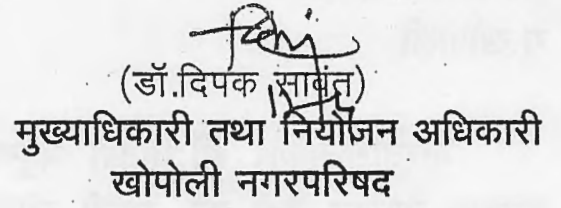 (डॉ.दिपक सावंत)
मुख्याधिकारी तथा नियोजन अधिकारी
खोपोली नगरपरिषद